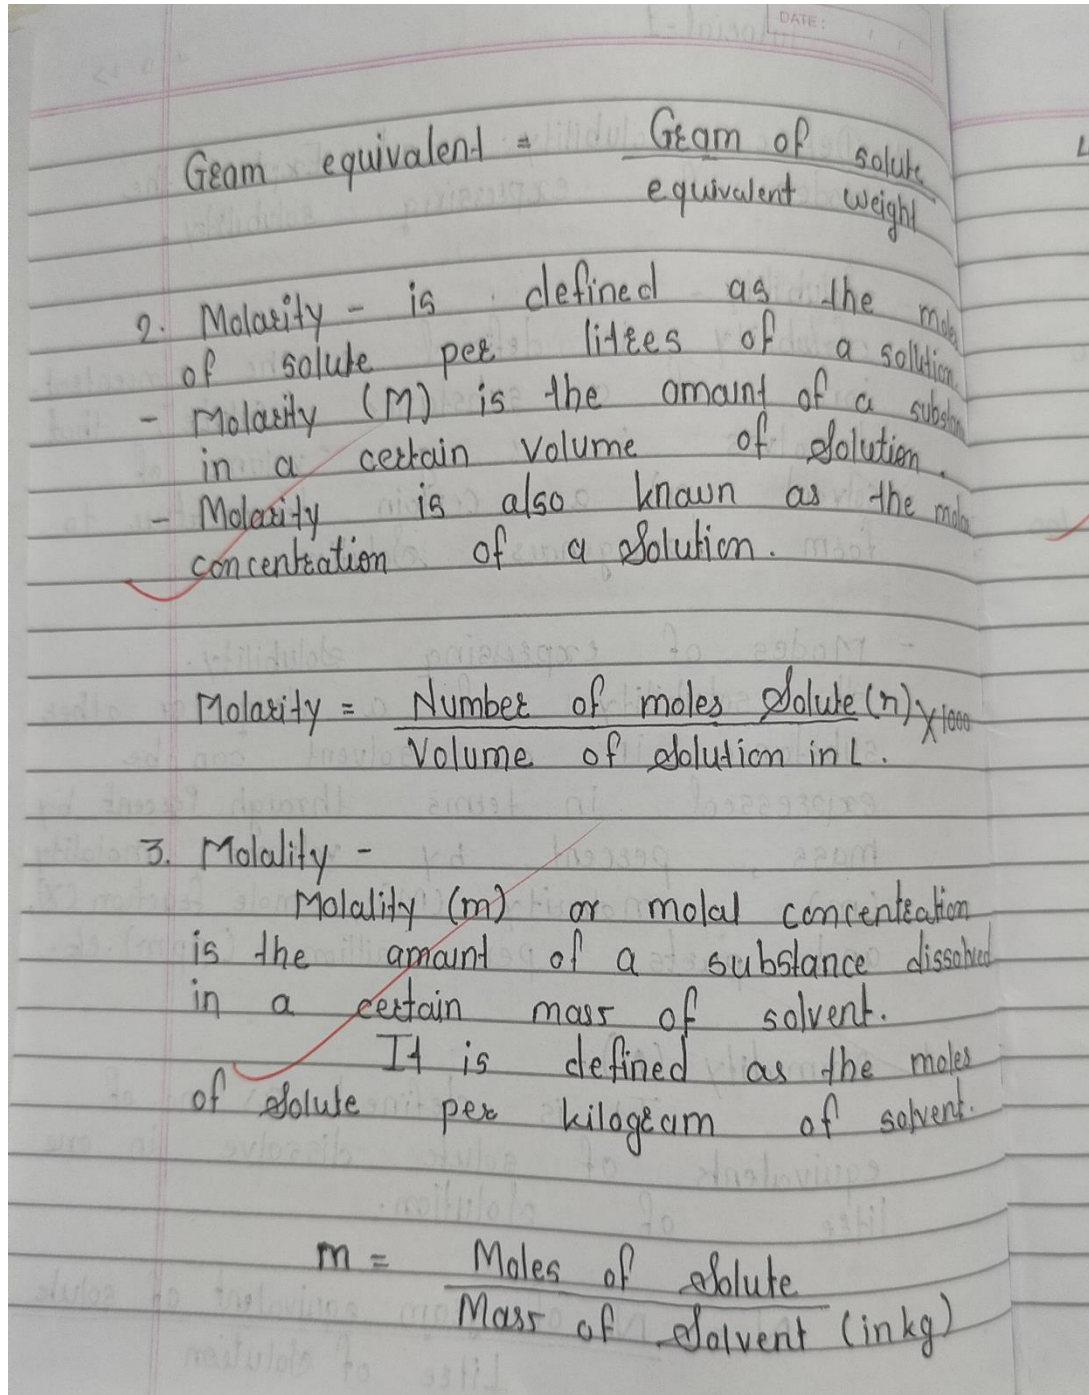 DATE:
Gram equivalent = Gram of solute
equivalent weight
2. Molarity - is defined as the moles
of solute per litres of a solution.
- Molarity (M) is the amaunt of a
in a certain volume of solution.
- Molarity is also known as the molar
concentration of a solution.
Molarity = Number of moles solute (n) X 1000
Volume of solution in L.
3. Molality -
Molality (m) or molal concentration
is the amaunt of a substance dissolved
in a certain mass of solvent.
It is defined as the moles
of solute per kilogram of solvent.
m = Moles of solute
Mass of solvent (in kg)